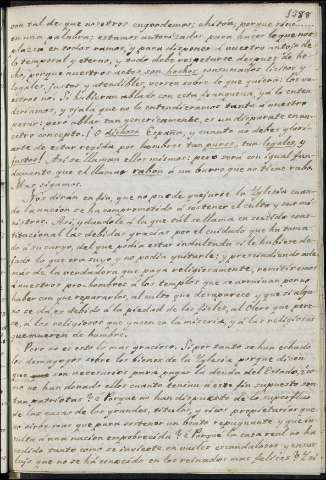 1388
con tal de que nosotros engordemos, chiton, porque sino.....
en una palabra; estamos autorizados para hacer lo que nos
plazca en todos ramos, y para disponer á nuestro antojo de
lo temporal y eterno, y todo debe respetarse despues de he-
cho, porque nuestros actos son hechos consumados, licitos y
legales, justos y atendibles, versen sobre lo que quiera: los ve-
nideros no. Si hubieran hablado con esta franqueza, ya lo enten-
deriamos, y ojala que no lo entendieramos tanto á nuestro
pesar: pero hablar tan genericamente, es un disparate en nu-
estro concepto. ¡O dichosa España, y cuanto no debes glori-
arte de estar regida por hombres tan puros, tan legales, y
justos! Asi se llaman ellos mismos: pero será con igual fun-
damento que el llamar rabon á un burro que no tiene rabo.
Mas sigamos.
Nos dirán en fin, que no puede quejarse la Yglesia cuan-
do la nacion se ha comprometido á sostener el culto y sus mi-
nistros. Asi; y dandole á la que tal se llama en sentido consti-
tucional las debidas gracias por el cuidado que ha toma-
do á su cargo, del que podia estar indultada si le hubiese de-
jado lo que era suyo y no podia quitarle; y prescindiendo ade-
mas de lo verdadera que paga religiosamente, remitiremos
á nuestros pro-hombres á los templos que se arruinan por no
haber con que repararlos, al culto que desaparece y que si algo
se da, es debido á la piedad de los fieles, al Clero que pere-
ce, á los religiosos que yacen en la miseria, y á las religiosas
que mueren de hambre.
Pero no es esto lo mas gracioso. Si por tanto se han echado
los demagogos sobre los bienes de la Yglesia porque dicen
que son necesarios para pagar la deuda del Estado, ¿co-
mo no han donado ellos cuanto tenian á este fin supuesto son
tan patriotas? ¿Porque no han dispuesto de lo superfluo
de las casas de los grandes, titulos, y ricos propietarios que
no sirve mas que para sostener un boato repugnante y que in-
sulta á una nacion empobrecida? ¿Porque la casa real no ha
cedido tanto como se invierte en vueltas escandalosas y en un
lujo que no se ha conocido en los reinados mas felices? ¿Y si